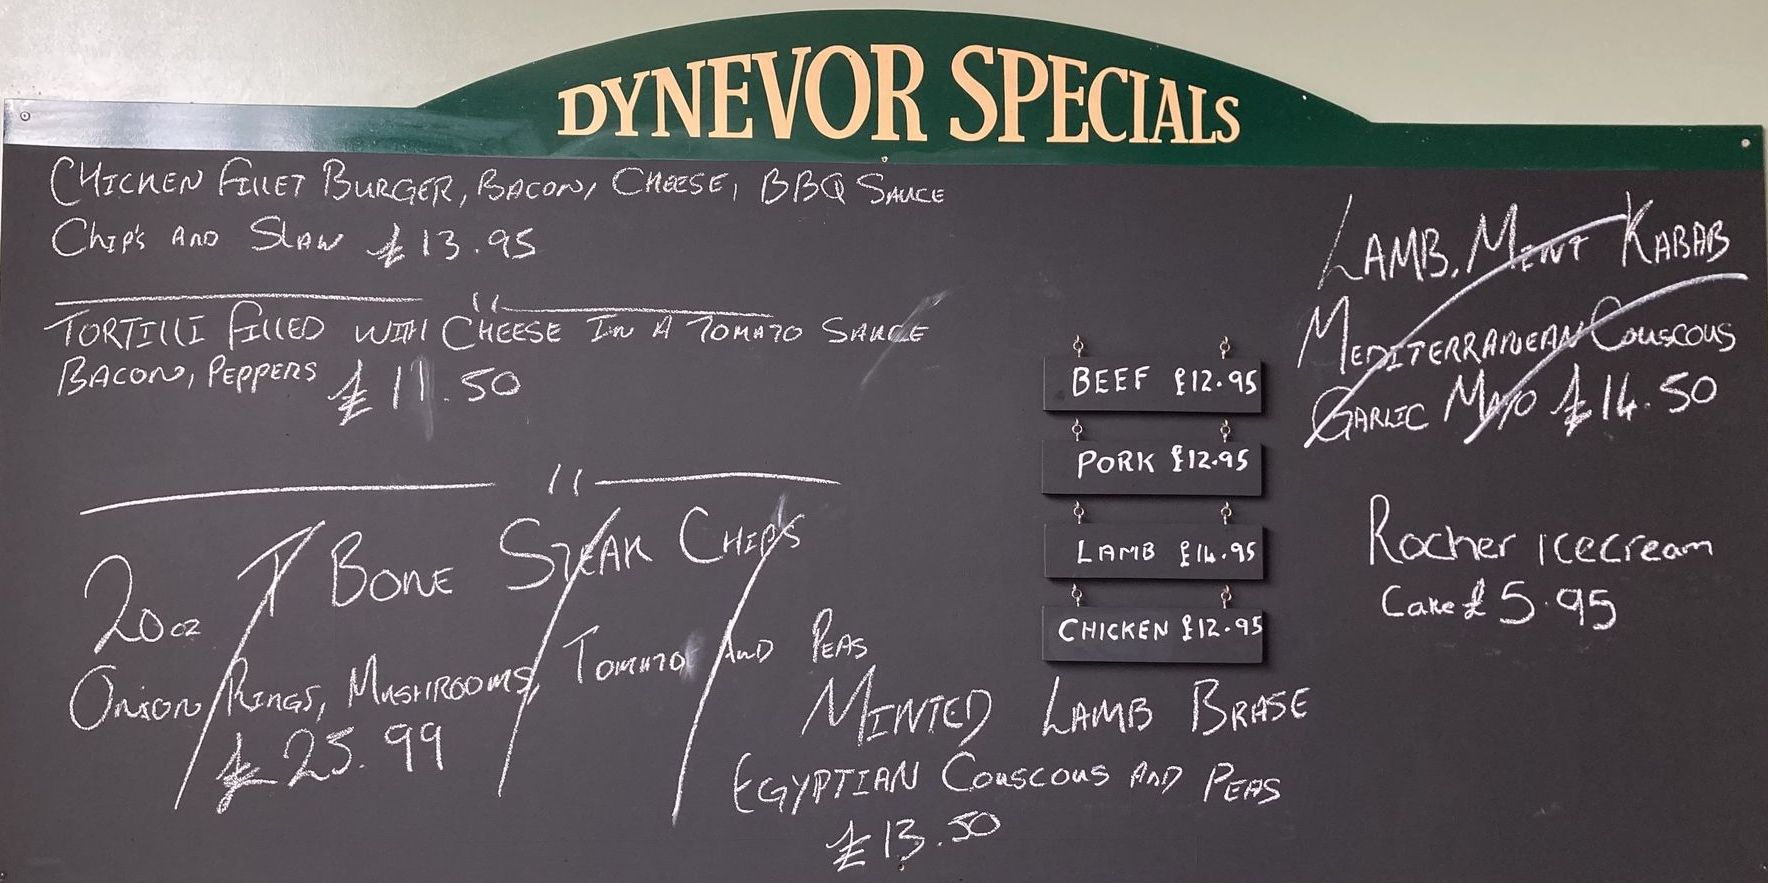 DYNEVOR SPECIALS
CHICKEN FILLET BURGER, BACON, CHEESE, BBQ SAUCE
CHIP'S AND SLAW £13.95
TORTILLI FILLED WITH CHEESE IN A TOMATO SAUCE
BACON, PEPPERS £11.50
20oz T BONE STEAK CHIPS
ONION RINGS, MUSHROOMS, TOMATO AND PEAS
£25.99
BEEF £12.95
PORK £12.95
LAMB £14.95
CHICKEN £12.95
MINTED LAMB BRASE
EGYPTIAN COUSCOUS AND PEAS
£13.50
LAMB, MINT KABAB
MEDITERRANEAN COUSCOUS
GARLIC MAYO £14.50
Rocher icecream
Cake £5.95